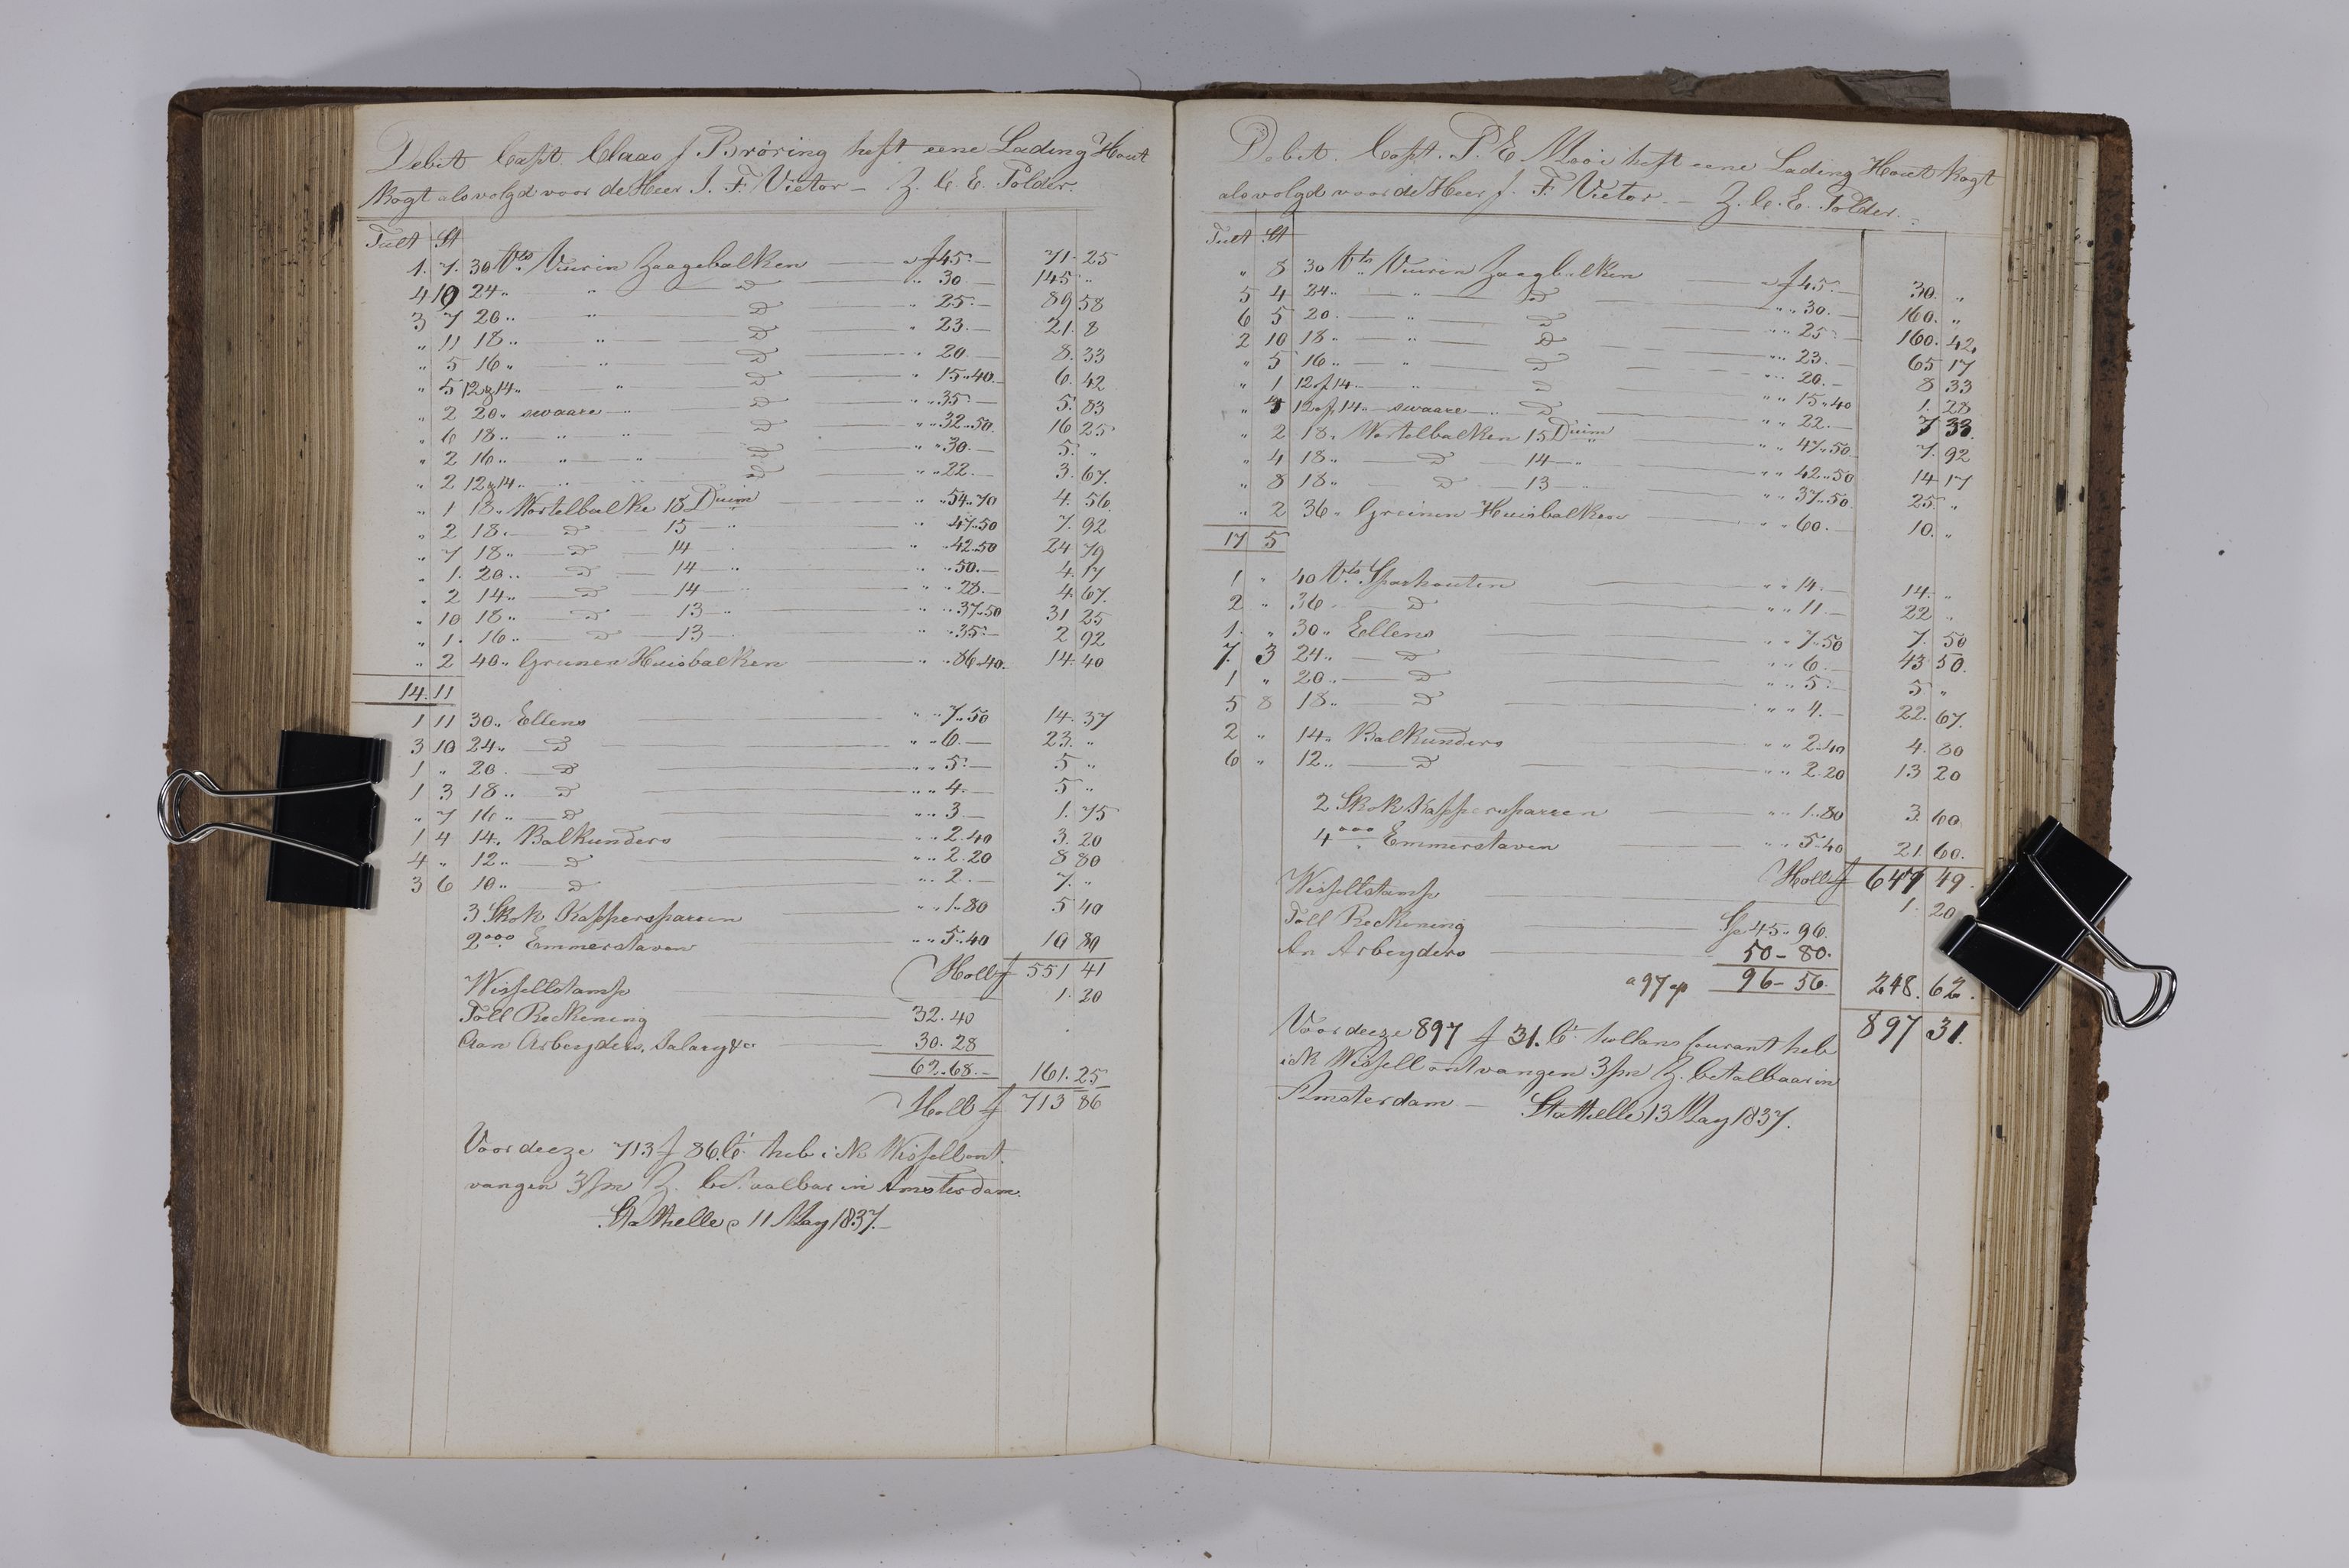 Debit Capt. Claas J Bröring heft eene Lading Hout
Kogt als volgd voor de Heer J. F. Vietor — Z. C. E. Polder.
Tult St
1. 7. 30 Vts Vuurin Zaagebalken — a f 45.— 71. 25
4 10 24 „ „ D „ 30.— 145 „
3 7 20 „ „ D „ 25.— 89 58
„ 11 18 „ „ D „ 23.— 21. 8
„ 5 16 „ „ D „ 20.— 8. 33
„ 5 12 a 14 „ „ D „ 15 „ 40.— 6. 42
„ 2 20 „ swaare „ D „ „ 35.— 5. 83
„ 6 18 „ — „ „ D „ „ 32 „ 50. 16 25
„ 2 16 „ — „ — „ D „ „ 30.— 5. „
„ 2 12 a 14 „ „ „ D „ „ 22.— 3. 67.
„ 1 18 „ Wortelbalke 18 Duim „ „ 54 „ 70 4. 56
„ 2 18. — D — 15 — „ „ 47 „ 50 7. 92
„ 7 18 „ — D — 14 — „ „ „ 42 „ 50 24 79
„ 1. 20 „ — D — 14 — „ „ „ 50.— 4. 17
„ 2 14 „ — D — 14 — „ „ „ 28.— 4. 67.
„ 10 18 „ — D — 13 „ „ „ 37 „ 50 31 25
„ 1. 16 „ — D — 13 — „ „ 35.— 2 92
„ 2 40 „ Greinen Huisbalken — „ „ 86 „ 40. 14. 40
14. 11
1 11 30 „ Ellens „ „ 7 „ 50 14. 37
3 10 24 „ — D „ „ 6.— 23. „
1 „ 20. — D „ „ 5.— 5 „
1 3 18 „ — D „ „ 4.— 5 „
„ 7 16 „ — D „ „ 3.— 1. 75
1 4 14. Balkunders „ „ 2 „ 40 3. 20
4 „ 12 „ — D „ „ 2. 20 8 80
3 6 10 „ — D „ „ 2.— 7. „
3 Skok Kappersparren „ „ 1 „ 80 5 40
2ooo Emmerstaven „ „ 5 „ 40 10 80
Holl f 551 41
Wissellstamp 1. 20
Toll Reckening 32. 40
Aan Arbeyders, Salary &c 30. 28
62 „ 68.— 161. 25
Holl f 713 86
Voor deeze 713 f 86. Ct heb ik Wissell ont-
vangen 3/m Z. betaalbar in Amsterdam.
Stathelle 11 May 1837.—
Debit. Capt. P. E Mooi heft eene Lading Hout Kogt
als volgd voor de Heer J. F. Vietor. — Z. C. E. Polder.—
Tult St
„ 8 30 Vts Vuuren Zaagbalken — a f 45.— 30. „
5 4 24 „ — „ D „ „ 30.— 160. „
6 5 20. — „ D „ „ 25.— 160. 42
2 10 18 „ — „ D „ „ 23.— 65 17
„ 5 16 „ „ D „ „ 20.— 8 33
„ 1 12 a 14 „ — „ D „ „ 15 „ 40 1. 28
„ 4 12 a 14 „ swaare — „ D „ „ 22.— 7 33.
„ 2 18. Wortelbalken 15 Duim „ „ 47 „ 50 7. 92
„ 4 18 „ D — 14 — „ „ „ 42 „ 50 14 17
„ 8 18 „ D — 13 — „ „ 37 „ 50 25 „
„ 2 36 „ Greinen Huisbalken „ „ 60.— 10. „
17 5
1 „ 40 Vts Sparhouten „ „ 14.— 14. „
2 „ 36. D „ „ 11.— 22 „
1. „ 30 „ Ellens „ „ 7 „ 50 7. 50
7. 3 24 „ — D „ „ 6.— 43 50.
1 „ 20 „ — D „ „ 5.— 5 „
5 8 18 „ — D „ „ 4.— 22. 67.
2 „ 14 „ Balkunders „ „ 2 „ 40 4. 80
6 „ 12 „ — D „ „ 2. 20 13 20
2 Skok Kappersparren „ „ 1 „ 80 3. 60
4ooo Emmerstaven „ „ 5 „ 40 21. 60.
Holl f 647 49.
Wissellstamp 1. 20
Toll Reckening Sp 45 „ 96.
An Arbeyders 50 – 80.
a 97 96 – 56. 248. 62.
897 31.
Voor deeze 897 f 31. Ct hollans Courant heb
ick Wissell ontvangen 3/m Z. betalbaar in
Amsterdam — Stathelle 13 May 1837.